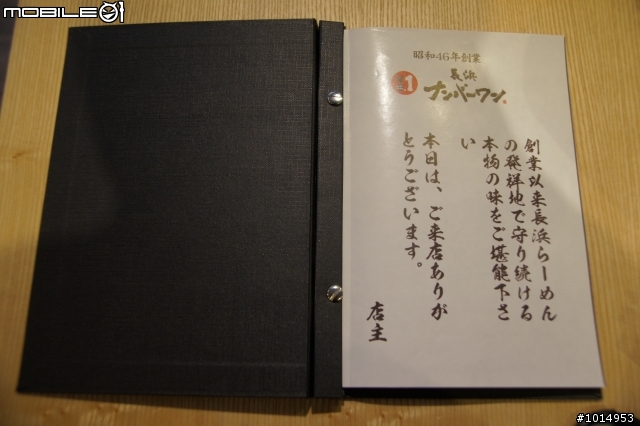 MOBILE01
昭和46年創業
長浜
1
ナンバーワン
創業以来長浜らーめん
の発祥地で守り続ける
本物の味をご堪能下さ
い
本日は、ご来店ありが
とうございます。
店主
#1014953